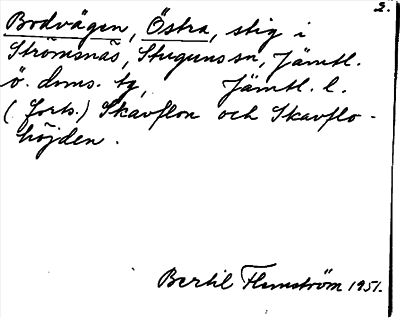 2.
Bodvägen, Östra, stig i
Strömsnäs, Stuguns sn, Jämtl.
ö. doms. tg, Jämtl. l.
(forts.) Skavflon och Skavflo-
höjden.
Bertil Flemström 1951.